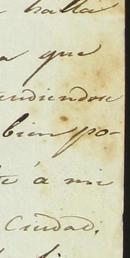 halla
que
endiendose
bien po-
te á mi
Ciudad.